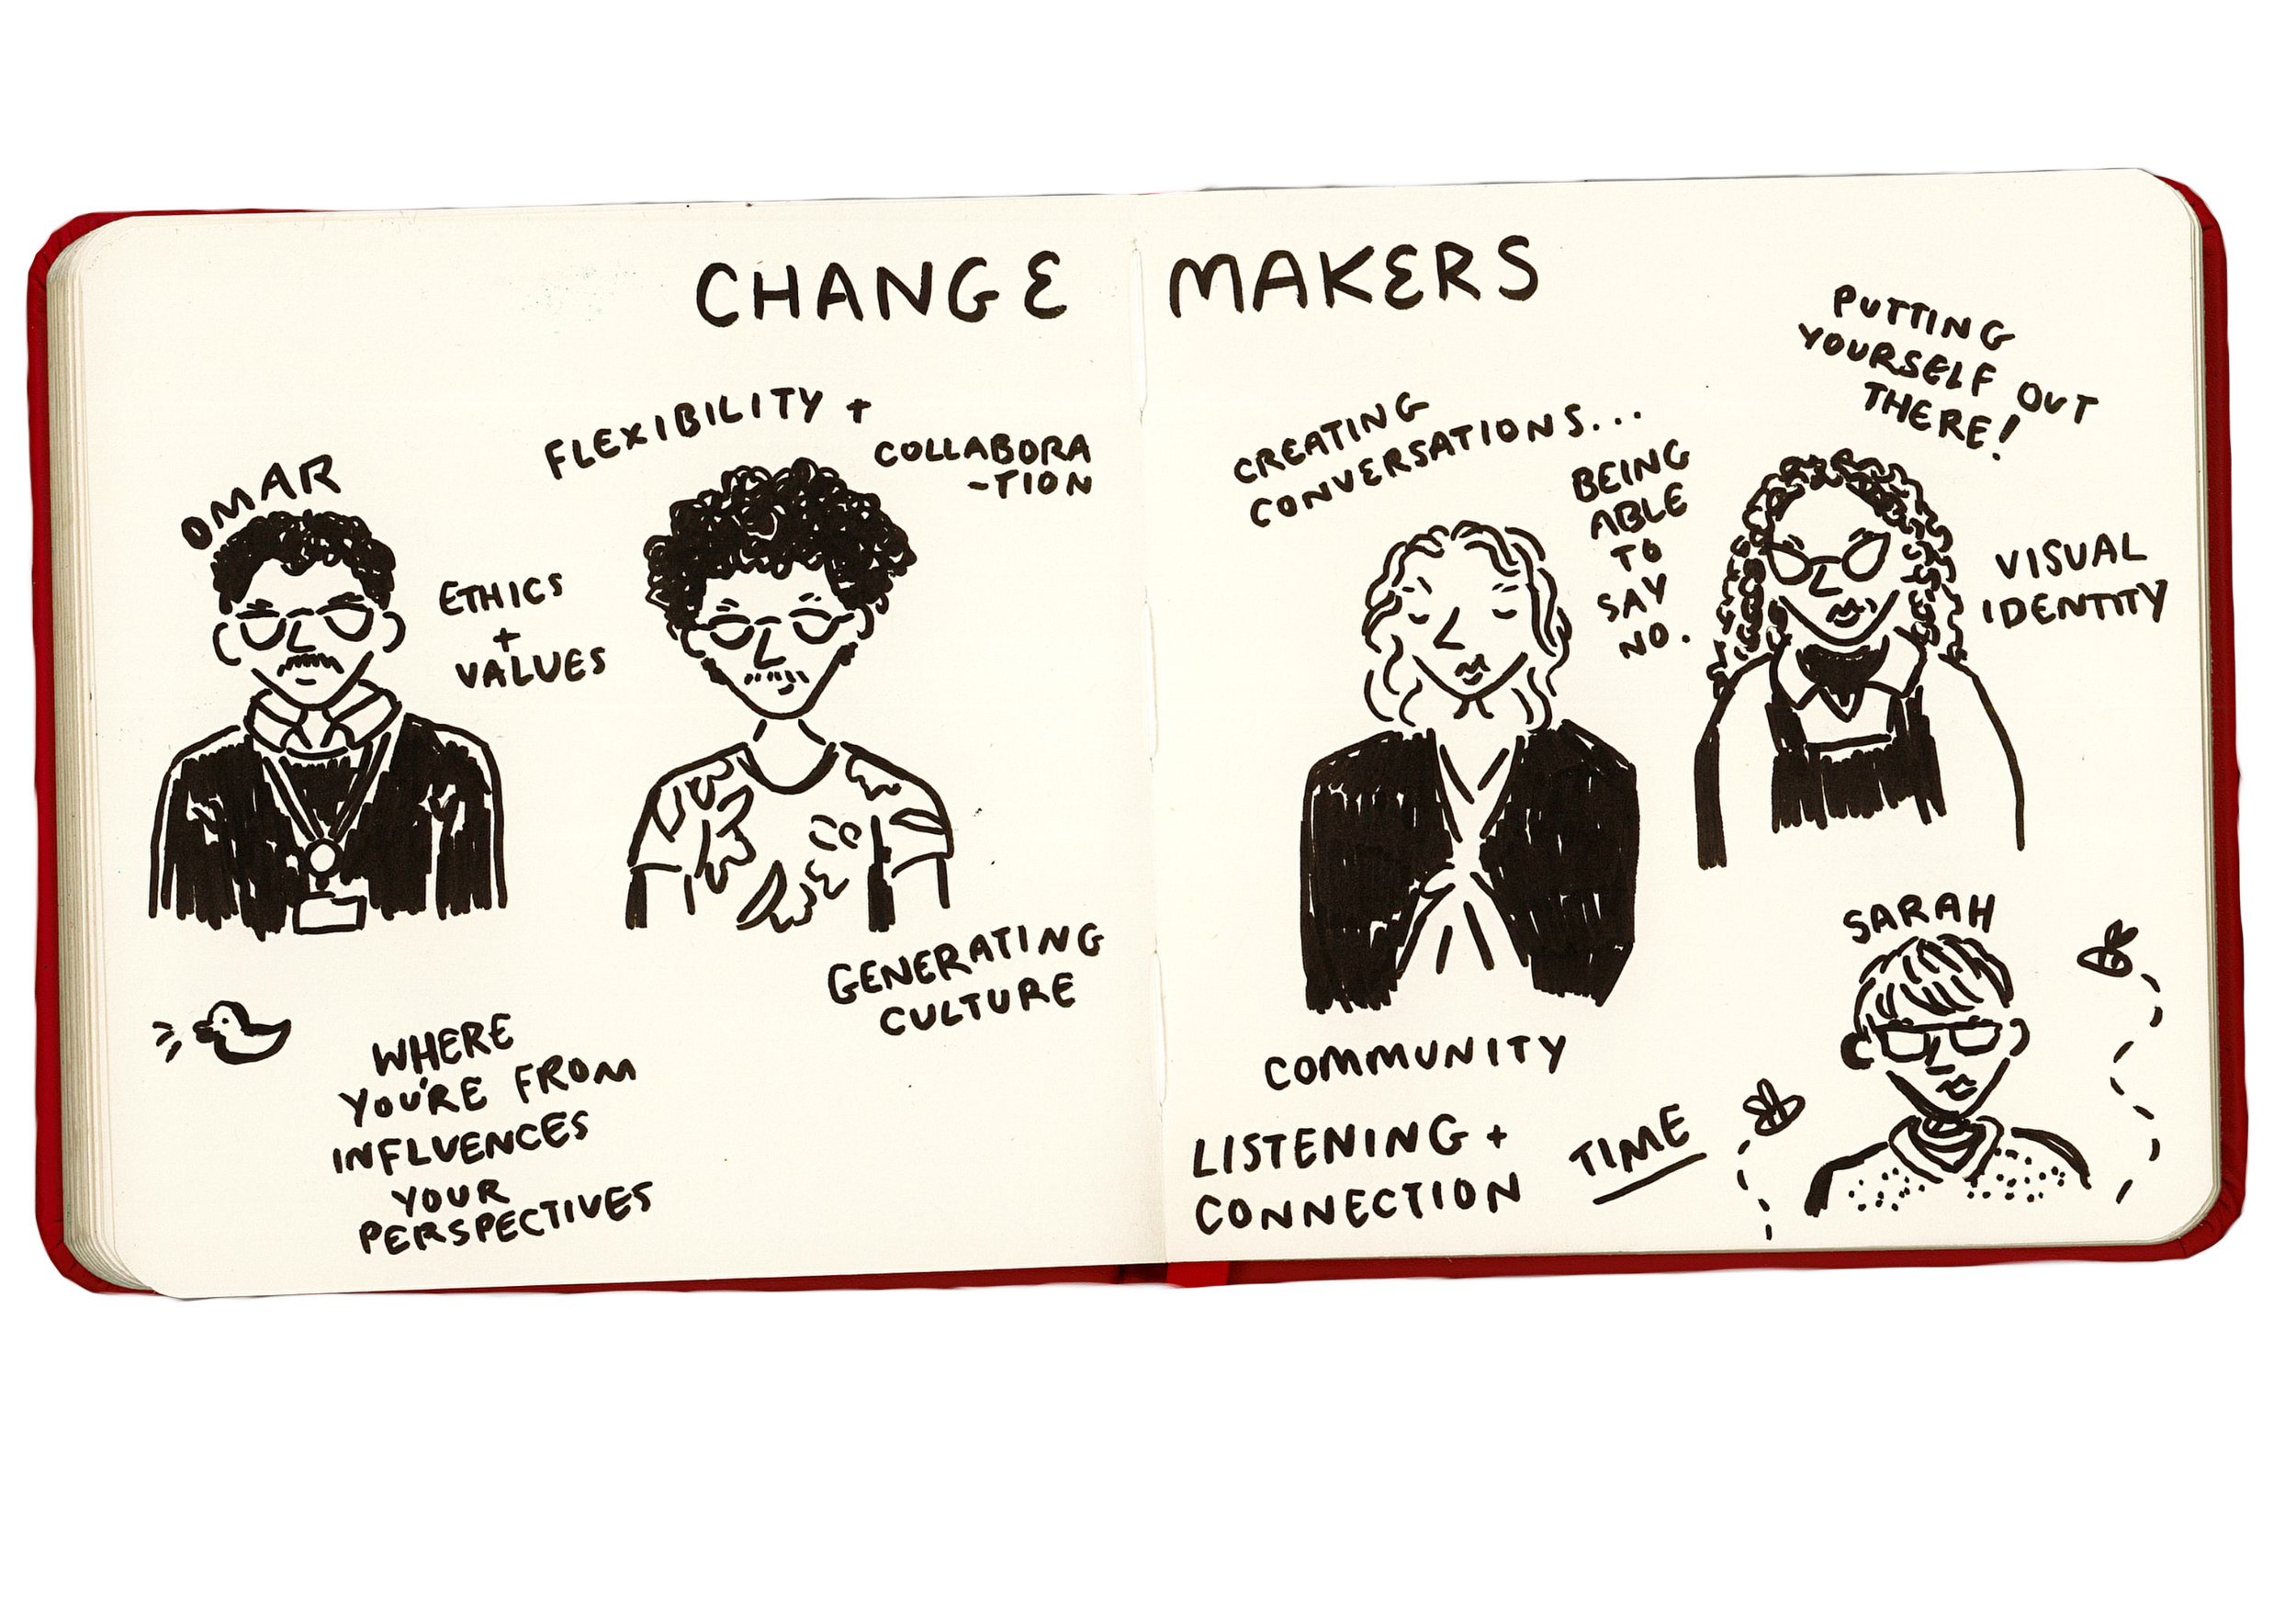 CHANGE MAKERS
OMAR
ETHICS
+
VALUES
FLEXIBILITY +
COLLABORA
-TION
GENERATING
CULTURE
WHERE
YOU'RE FROM
INFLUENCES
YOUR
PERSPECTIVES
CREATING
CONVERSATIONS...
BEING
ABLE
TO
SAY
NO.
PUTTING
YOURSELF OUT
THERE!
VISUAL
IDENTITY
COMMUNITY
LISTENING +
CONNECTION
TIME
SARAH